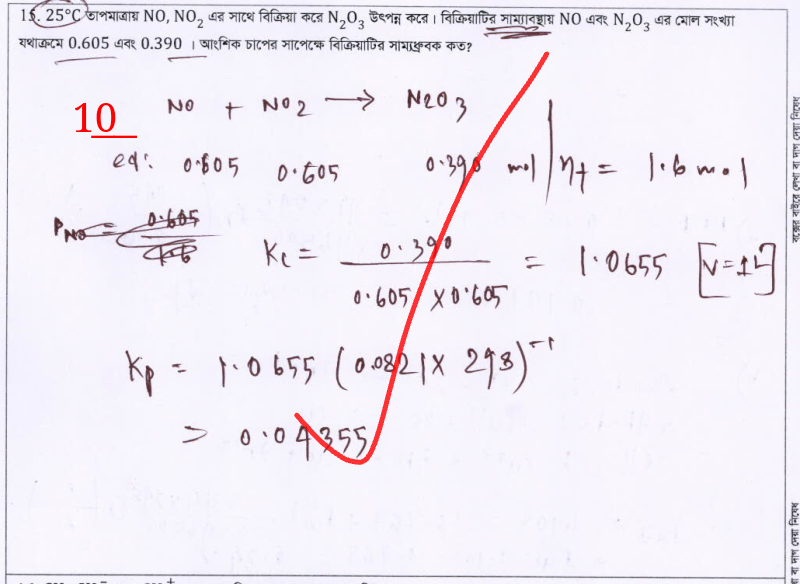 15. 25°C তাপমাত্রায় NO, NO₂ এর সাথে বিক্রিয়া করে N₂O₃ উৎপন্ন করে। বিক্রিয়াটির সাম্যাবস্থায় NO এবং N₂O₃ এর মোল সংখ্যা
যথাক্রমে 0.605 এবং 0.390 । আংশিক চাপের সাপেক্ষে বিক্রিয়াটির সাম্যধ্রুবক কত?
10
NO + NO₂ → N₂O₃
eq: 0.605 0.605 0.390 mol | n_t = 1.6 mol
P_NO = 0.605 / 1.6
K_c = 0.390 / 0.605 × 0.605 = 1.0655 [V=1L]
K_p = 1.0655 (0.0821 × 298)⁻¹
= 0.04355
বক্সের বাইরে লেখা বা দাগ দেয়া নিষেধ
বা দাগ দেয়া নিষেধ